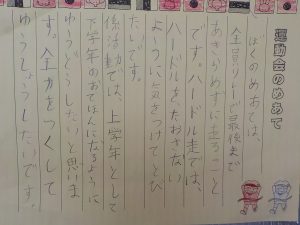 運動会のめあて
ぼくのめあては、
全員リレーで最後まで
あきらめずに走ること
です。ハードル走では、
ハードルをたおさない
ように気をつけてとび
たいです。
係活動では、上学年として
下学年のおてほんになるように
ゆうどうしたいと思いま
す。全力をつくして
ゆうしょうしたいです。